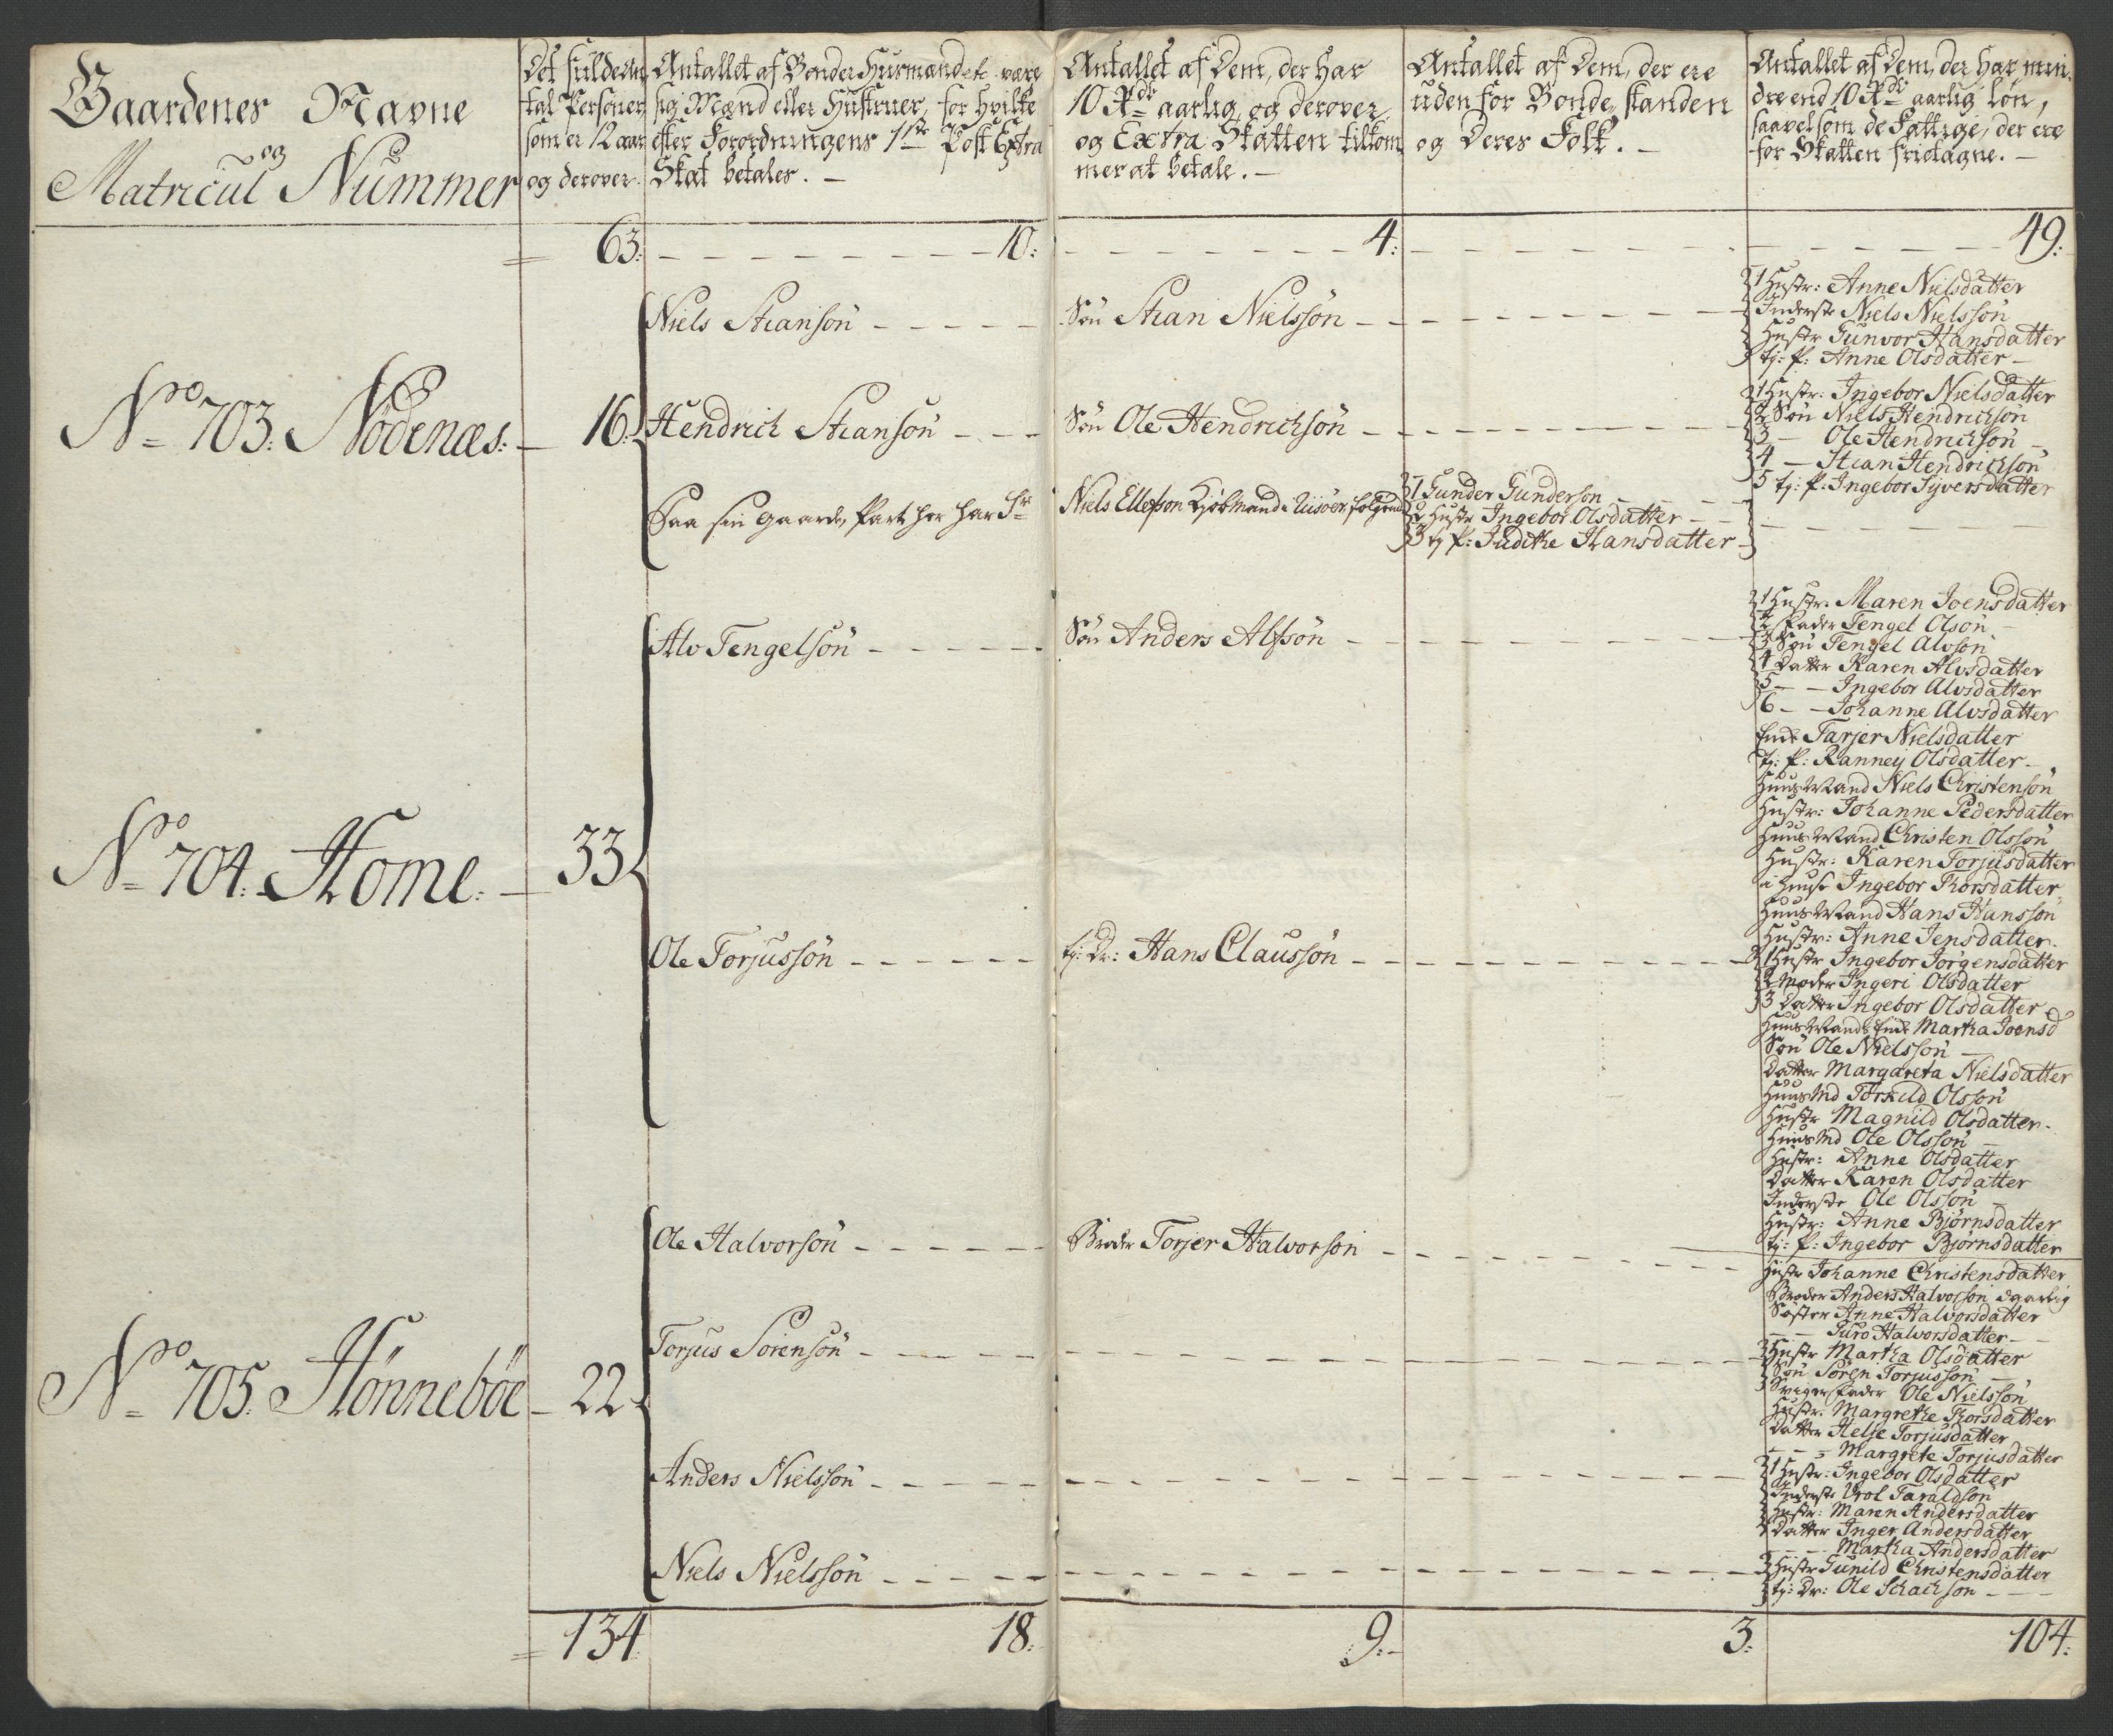 Gaardenes Navne
og
Matricul Nummer
Det fulde An
tal Personer
som er 12 aar
og derover.
Antallet af Bonder Husmænd etc være
sig Mænd eller Hustruer, for hvilke
efter Forordningens 1ste Post Extra
Skat betales. —
Antallet af Dem, der har
10 Rdr aarlig og derover,
og Extra Skatten tilkom
mer at betale. —
Antallet af Dem, der ere
uden for Bonde standen
og Deres Folk. —
Antallet af Dem, der har min
dre end 10 Rdr aarlig Løn,
saavelsom de Fattige, der ere
for Skatten frietagne. —
63: 10: 4: 49:
No 703. Nödenæs: 16.
Niels Stiansön
Sön Stian Nielssön
1 Hustr: Anne Nielsdatter
Inderste Niels Nielssön
Hustr Gunvor Hansdatter
tj: P: Anne Olsdatter
Hendrich Stiansön
Sön Ole Hendrichsön
1 Hustr: Ingebor Nielsdatter
2 Sön Niels Hendrichsön
3 — Ole Hendrichsön
4 — Stian Hendrichsön
5 tj: P: Ingebor Syversdatter
Paa sin Gaarde Part her har Sr
Niels Ellefson Kjöbmand i Riisöer følgende
1 Gunder Gunderson
2 Hustr Ingebor Olsdatter
3 tj P: Judithe Hansdatter
No 704. Home. 33
Alv Tengelsön
Sön Anders Alfsön
1 Hustr. Maren Joensdatter
2 Fader Tengel Olsön
3 Sön Tengel Alvsön
4 Datter Karen Alvsdatter
5 — — Ingebor Alvsdatter
6 — — Johanne Alvsdatter
Enke Tarjer Nielsdatter
Tj: P: Ranney Olsdatter
HuusMand Niels Christensön
Hustr: Johanne Pedersdatter
HuusMand Christen Olssön
Hustr: Karen Torjusdatter
i huuse Ingebor Thorsdatter
HuusMand Hans Hanssön
Hustr: Anne Jensdatter
Ole Torjussön
tj: Dr: Hans Claussön
1 Hustr Ingebor Jörgensdatter
2 Moder Ingeri Olsdatter
3 Datter Ingebor Olsdatter
HuusMands Enke Martha Joensd
Sön Ole Nielssön
Datter Margareta Nielsdatter
HuusMd Törkild Olssön
Hustr Magnild Olsdatter
HuusMd Ole Olssön
Hustr: Anne Olsdatter
Datter Karen Olsdatter
Inderste Ole Olssön
Hustr: Anne Björnsdatter
tj: P: Ingebor Björnsdatter
No 705. Hönneböe 22
Ole Halvorsön
Broder Torjer Halvorson
Hustr Johanne Christensdatter
Broder Anders Halvorsön daarlig
Söster Anne Halvorsdatter
— — Guro Halvorsdatter
Torjus Sörensön
Hustr Martha Olsdatter
Sön Sören Torjussön
Svigerfader Ole Nielssön
Hustr: Margrethe Thorsdatter
Datter Helje Torjusdatter
— — Margrete Torjusdatter
Anders Nielssön
1 Hustr: Ingebor Olsdatter
Inderste Vrol Taraldsön
Hustr: Maren Andersdatter
Datter Inger Andersdatter
— — Martha Andersdatter
Niels Nielssön
Hustr Gunild Christensdatter
tj: Dr: Ole Schachsön
134 18: 9: 3: 104: